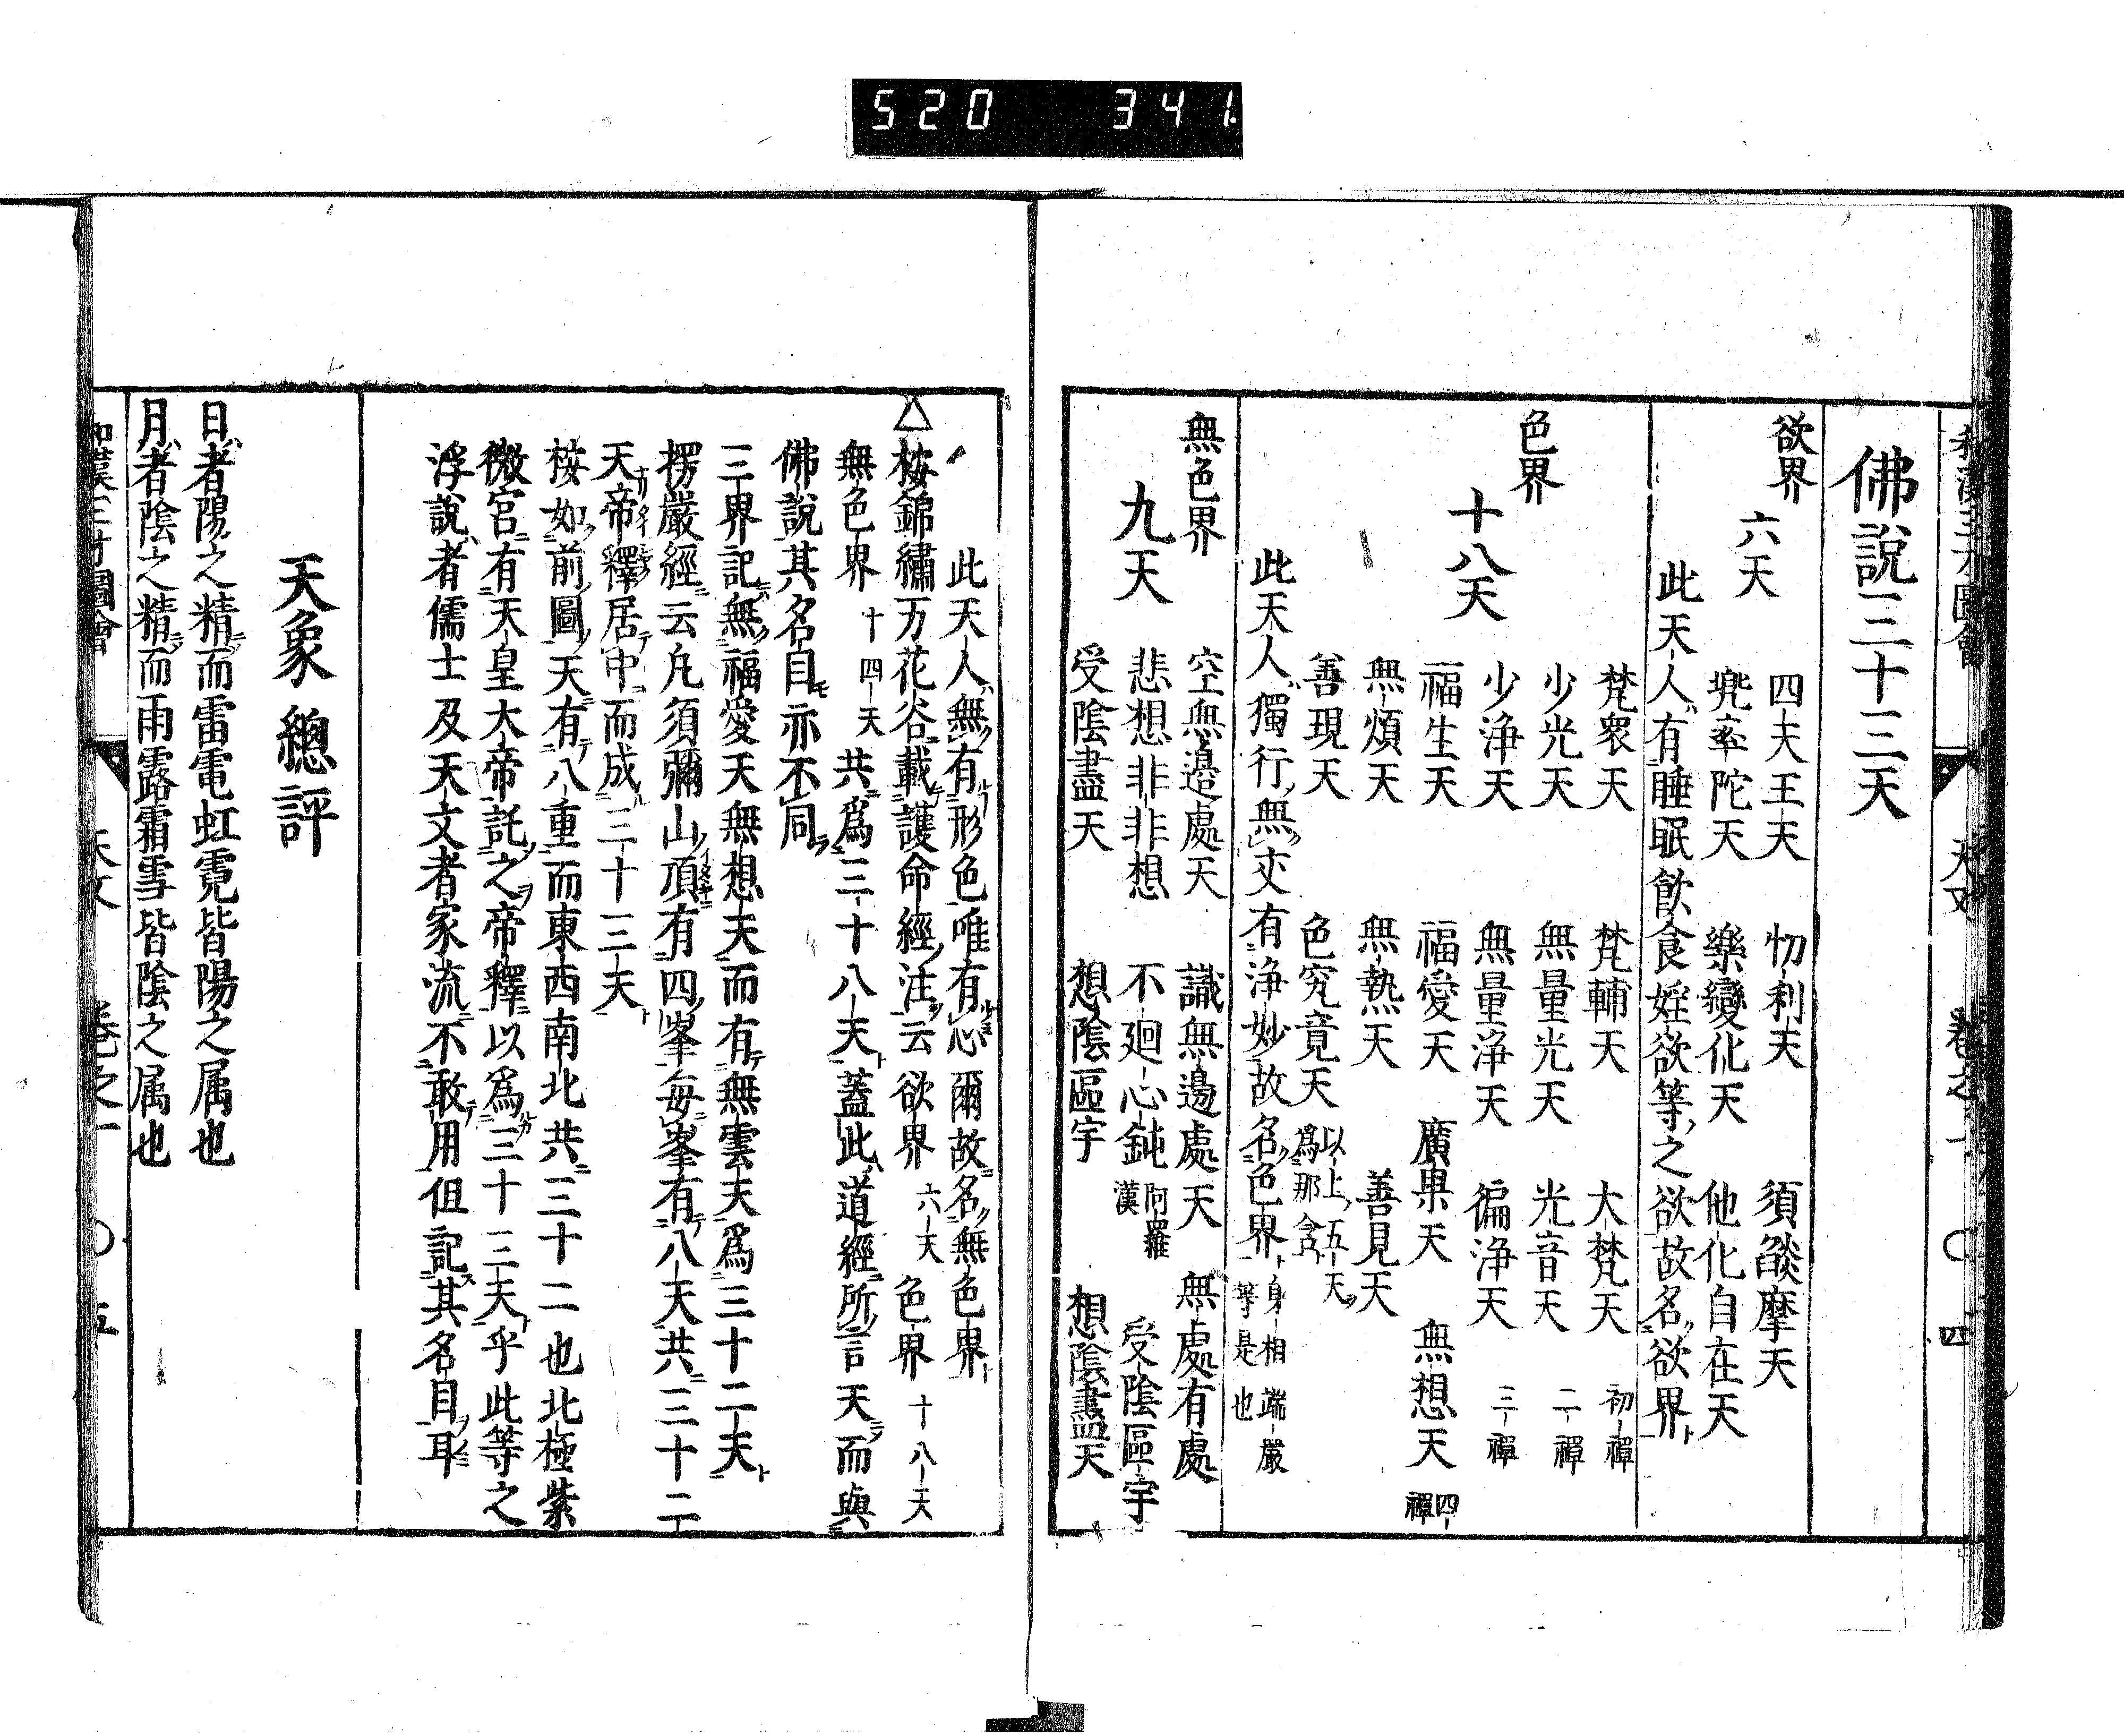 520 341
佛說三十三天
欲界
六天
四大王天 忉利天 須燄摩天
兠率陀天 樂變化天 他化自在天
此天人有睡眠飲食婬欲等之欲故名欲界
色界
十八天
梵衆天 梵輔天 大梵天 初禪
少光天 無量光天 光音天 二禪
少浄天 無量浄天 徧浄天 三禪
福生天 福愛天 廣果天 無想天 四禪
無煩天 無熱天 善見天
善現天 色究竟天 以上五天爲那含
此天人獨行無交有浄妙故名色界 身相端嚴等是也
無色界
九天
空無邉處天 識無邉處天 無處有處
悲想非非想 不廻心鈍 阿羅漢 受陰區宇
受陰盡天 想陰區宇 想陰盡天
此天人無有形色唯有心爾故名無色界
△桉錦繡万花谷載護命經注云欲界 六天 色界 十八天
無色界 十四天 共爲三十八天蓋此道經所言天而與
佛說其名目亦不同
三界記無福愛天無想天而有無雲天爲三十二天
楞嚴經云凢須彌山頂有四峯每峯有八天共三十二
天帝釋居中而成三十三天
桉如前圖天有八重而東西南北共三十二也北極紫
微宮有天皇大帝託之帝釋以爲三十三天乎此等之
浮說者儒士及天文者家流不敢用但記其名目耳
天象總評
日者陽之精而雷電虹霓皆陽之属也
月者陰之精而雨露霜雪皆陰之属也